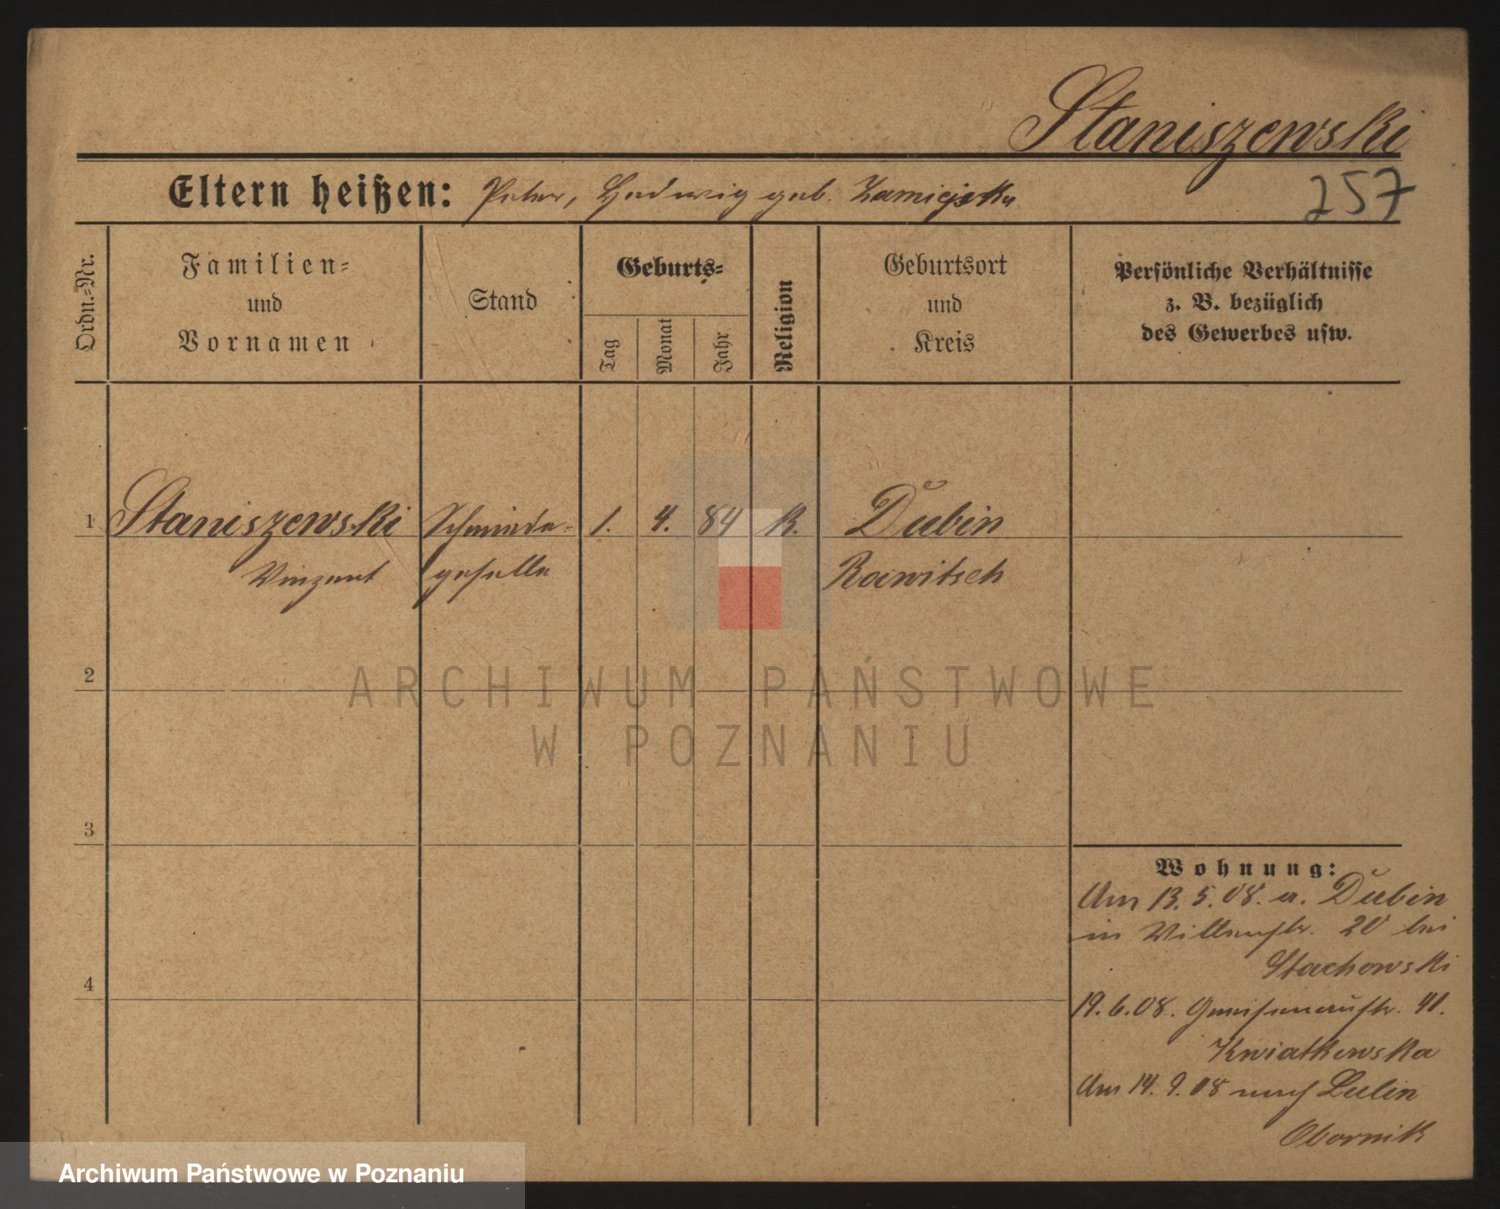 Staniszewski
Eltern heißen: Peter, Hedwig geb. Zamiejska
257
Ordn.-Nr.
Familien-
und
Vornamen
Stand
Geburts-
Tag
Monat
Jahr
Religion
Geburtsort
und
Kreis
Persönliche Verhältnisse
z. B. bezüglich
des Gewerbes usw.
1 Staniszewski Schmiede- 1. 4. 84 K. Dubin
Vinzent geselle Rawitsch
2
3
4
Wohnung:
Am 13.5.08. a. Dubin
in Villenstr. 20 bei
Stachowski
19.6.08. Gneisenaustr. 41.
Kwiatkowska
Am 14.9.08 nach
Obornik
ARCHIWUM PAŃSTWOWE
W POZNANIU
Archiwum Państwowe w Poznaniu